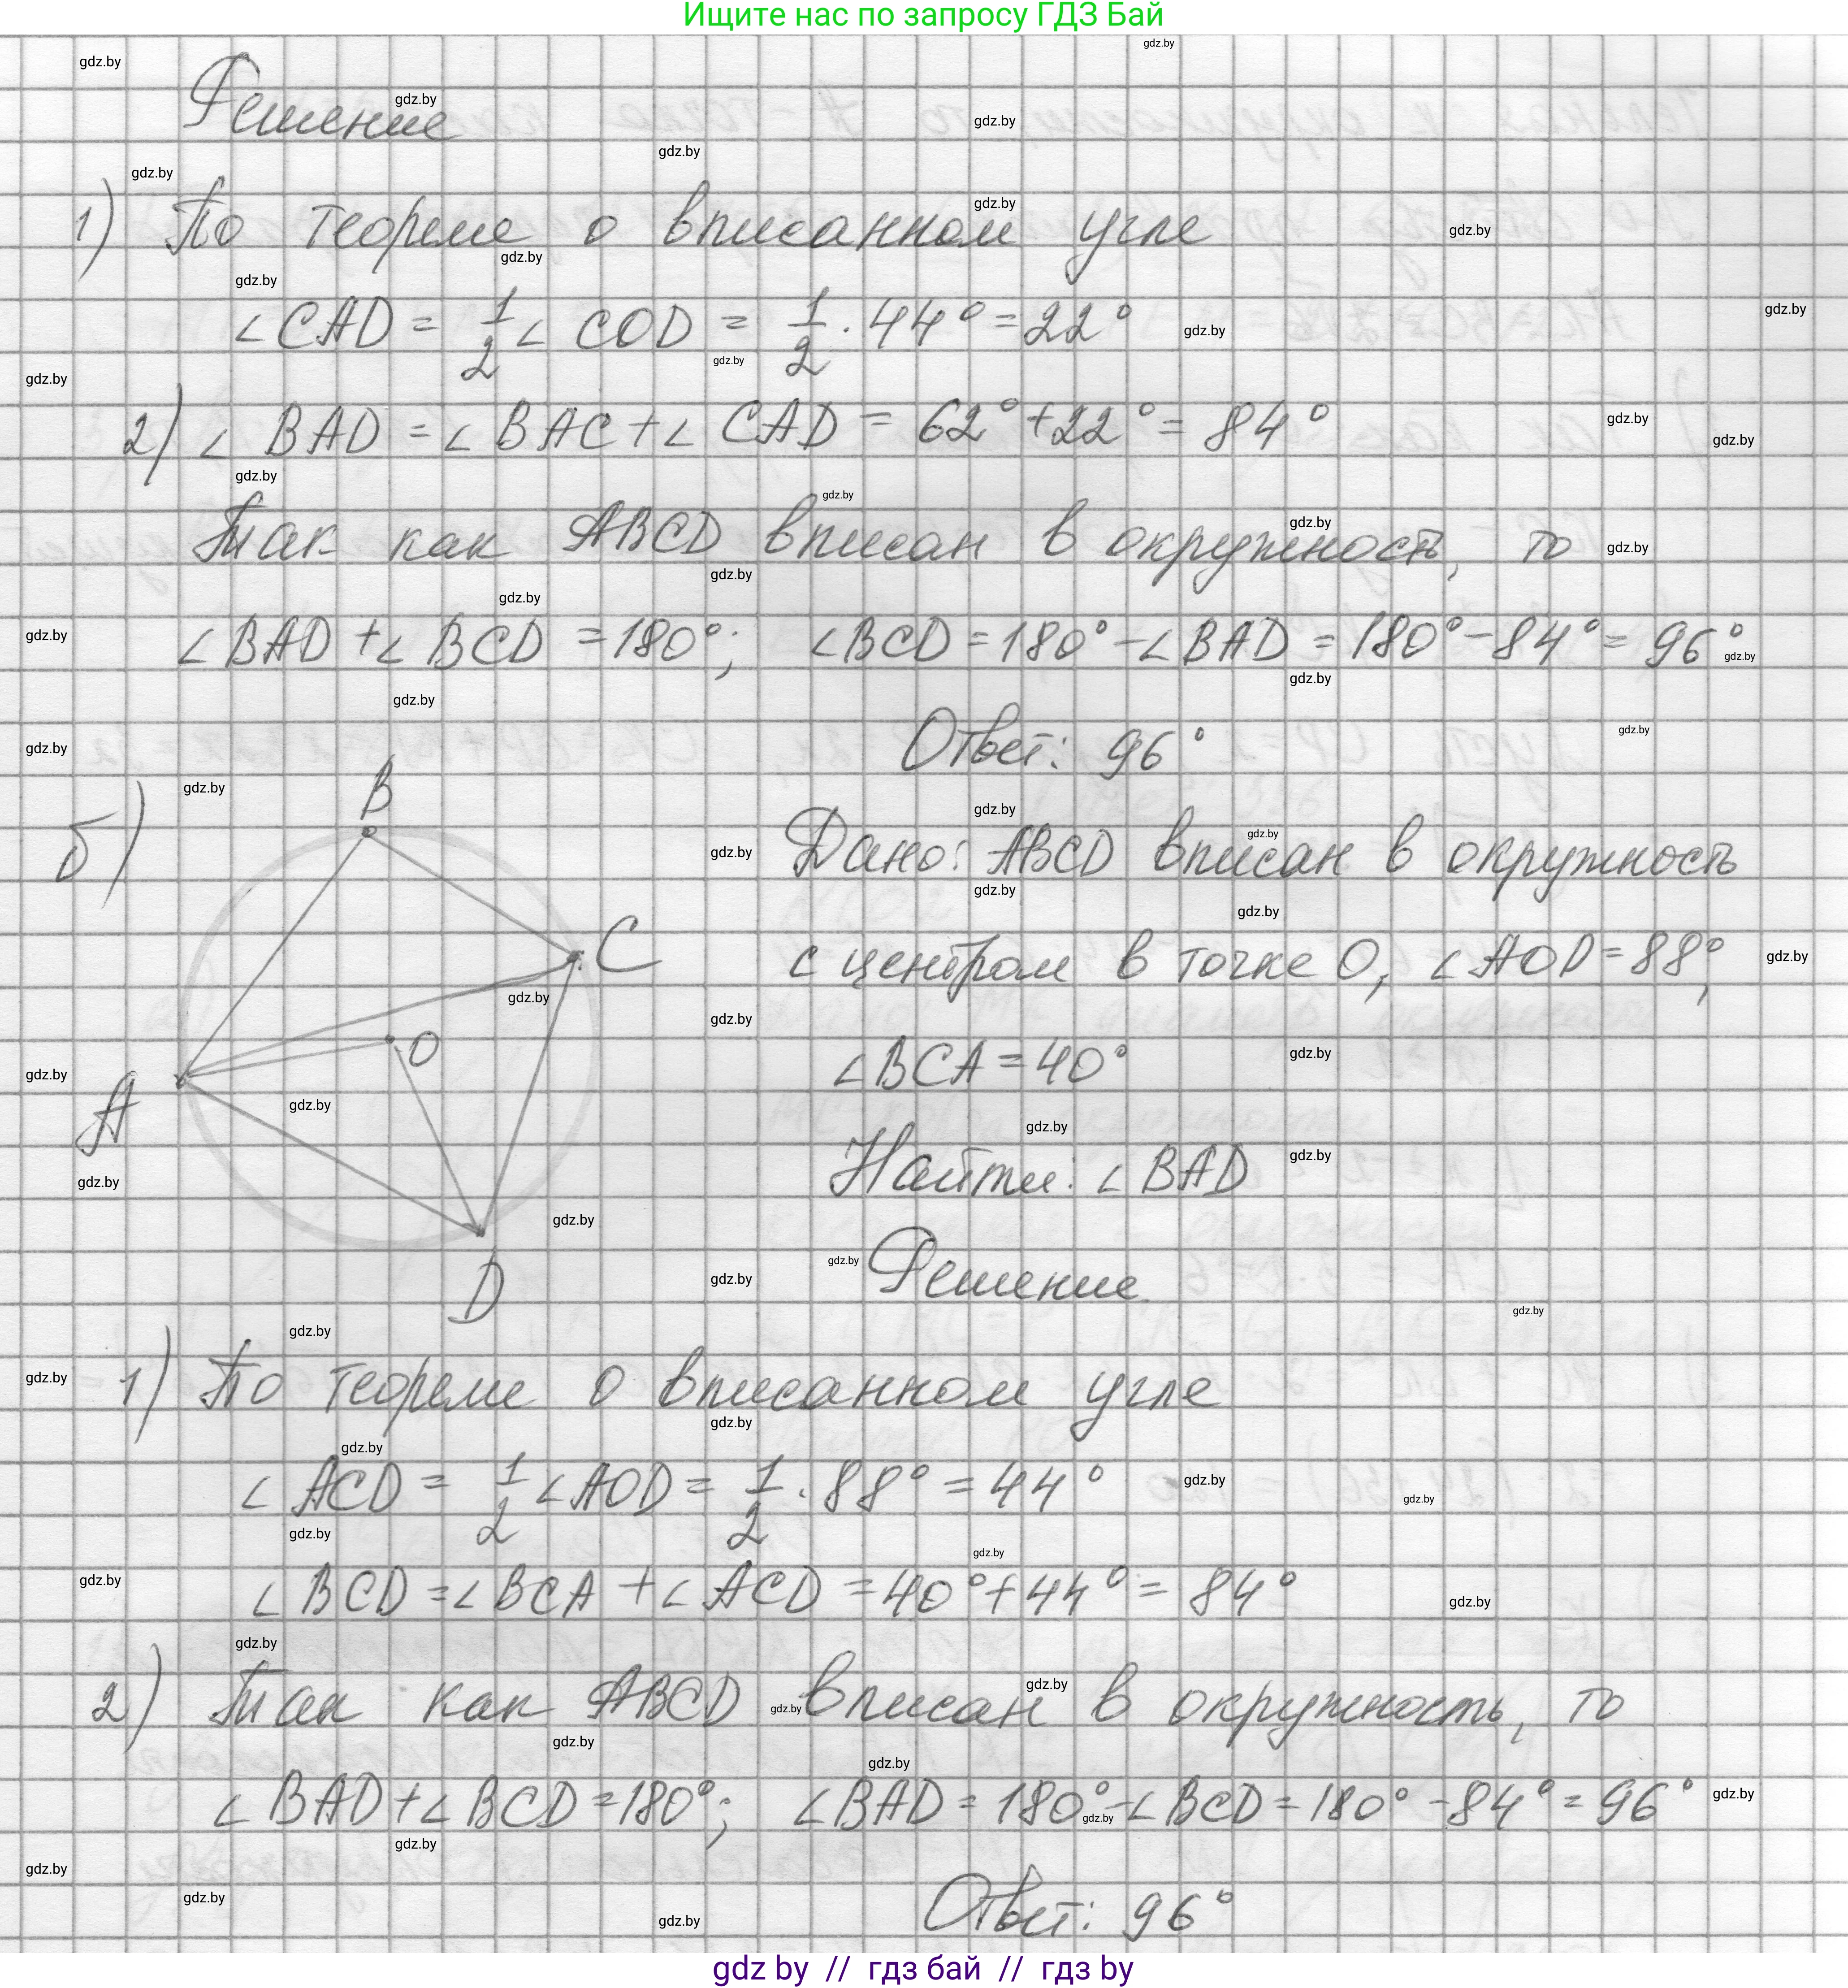 Ищите нас по запросу ГДЗ Бай
Решение
1) По теореме о вписанном угле
∠CAD = 1/2 ∠ COD = 1/2 · 44° = 22°
2) ∠ BAD = ∠ BAC + ∠ CAD = 62° + 22° = 84°
Так как ABCD вписан в окружность, то
∠ BAD + ∠ BCD = 180°; ∠BCD = 180° - ∠ BAD = 180° - 84° = 96°
Ответ: 96°
б)
B
C
O
A
D
Дано: ABCD вписан в окружность
с центром в точке O, ∠ AOD = 88°,
∠ BCA = 40°
Найти: ∠ BAD
Решение
1) По теореме о вписанном угле
∠ ACD = 1/2 ∠ AOD = 1/2 · 88° = 44°
∠ BCD = ∠ BCA + ∠ ACD = 40° + 44° = 84°
2) Так как ABCD вписан в окружность, то
∠ BAD + ∠ BCD = 180°; ∠ BAD = 180° - ∠ BCD = 180° - 84° = 96°
Ответ: 96°
gdz by // гдз бай // гдз by